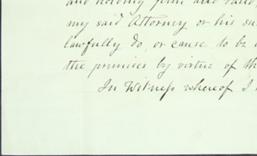 and holding firm and valid
my said Attorney or his su
lawfully do, or cause to be d
the premises by virtue of th
In Witness whereof I